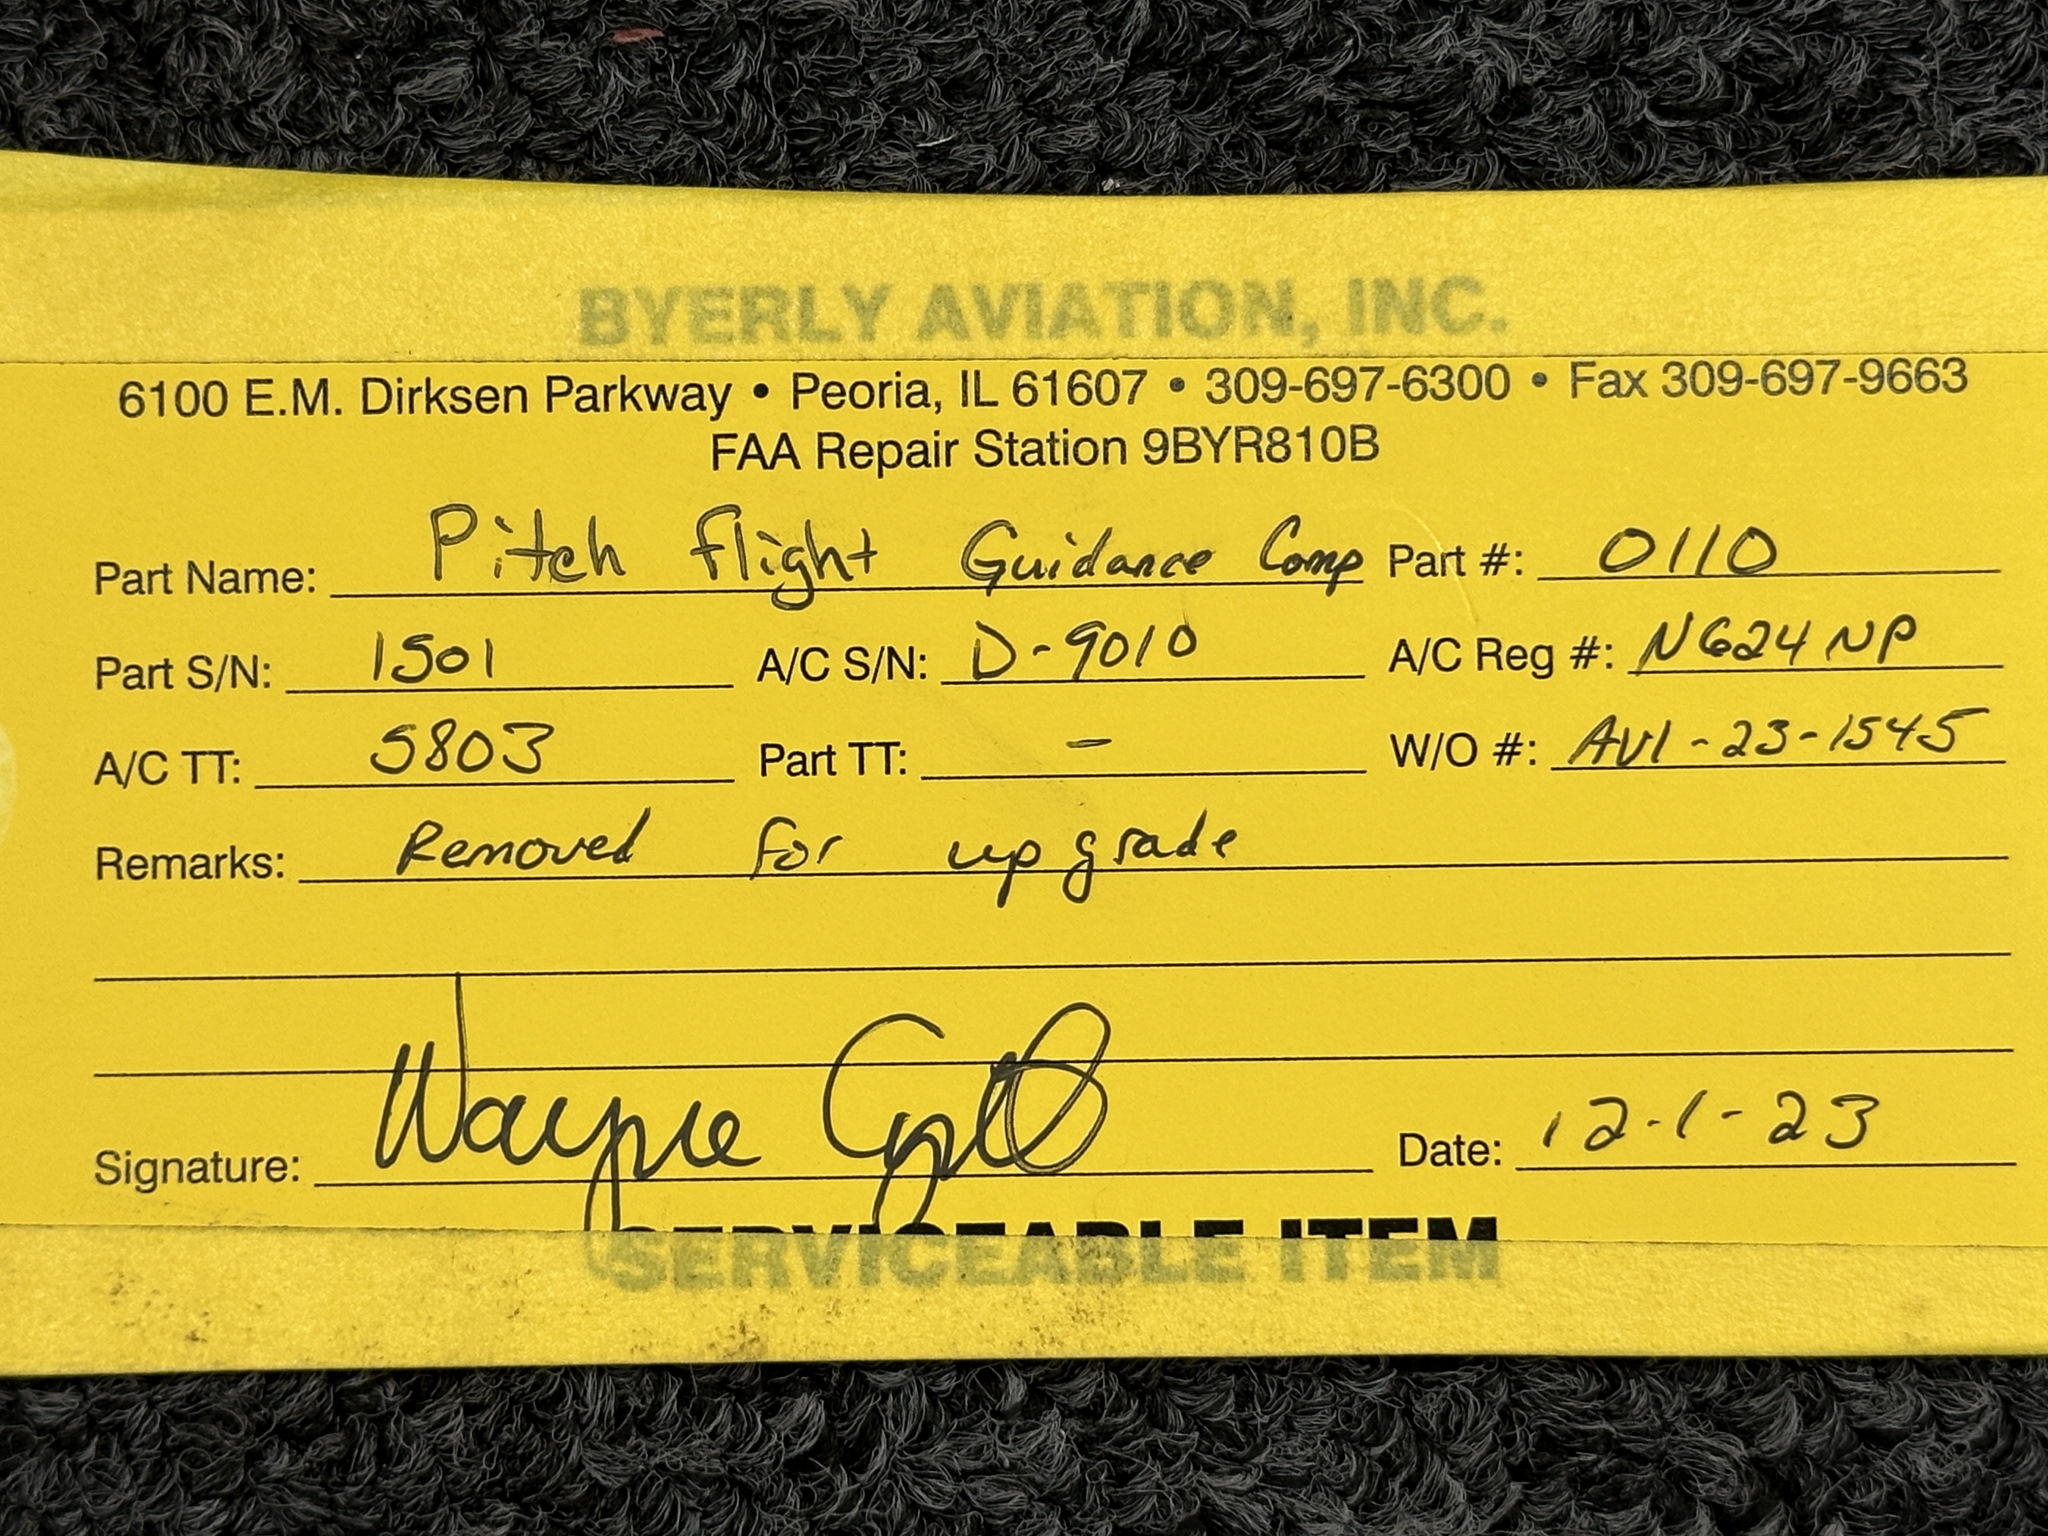 BYERLY AVIATION, INC.
6100 E.M. Dirksen Parkway • Peoria, IL 61607 • 309-697-6300 • Fax 309-697-9663
FAA Repair Station 9BYR810B
Part Name: Pitch flight Guidance Comp Part #: 0110
Part S/N: 1501 A/C S/N: D-9010 A/C Reg #: N624NP
A/C TT: 5803 Part TT: - W/O #: AVI-23-1545
Remarks: Removed for upgrade
Signature: Wayne Date: 12-1-23
SERVICEABLE ITEM